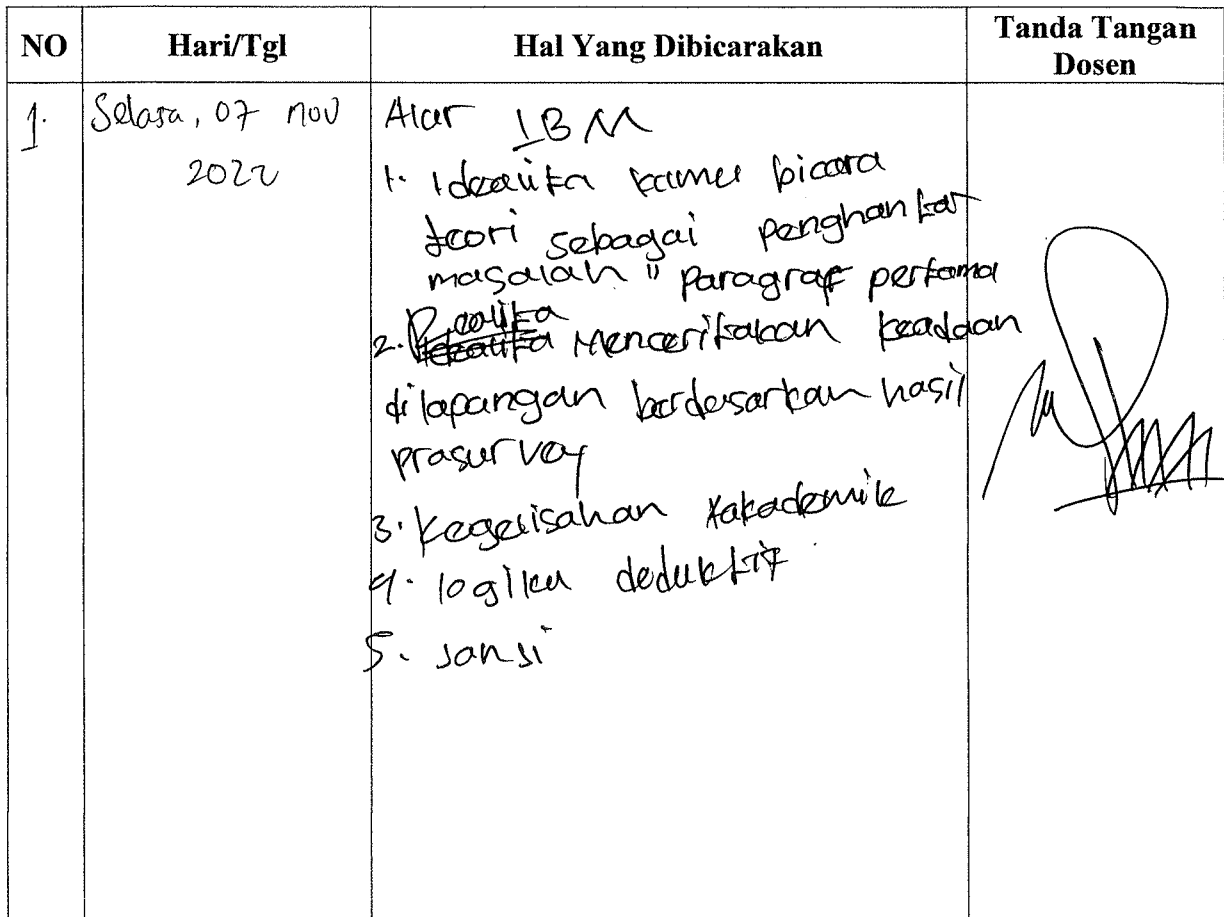 NO Hari/Tgl Hal Yang Dibicarakan Tanda Tangan Dosen
1. Selasa, 07 nov 2022
Alur LBM
1. Idealita kamu bicara
teori sebagai penghantar
masalah " paragraf pertama
2. Realita Menceritakan keadaan
dilapangan berdasarkan hasil
prasurvey
3. Kegelisahan akademik
4. logika deduktif
5.